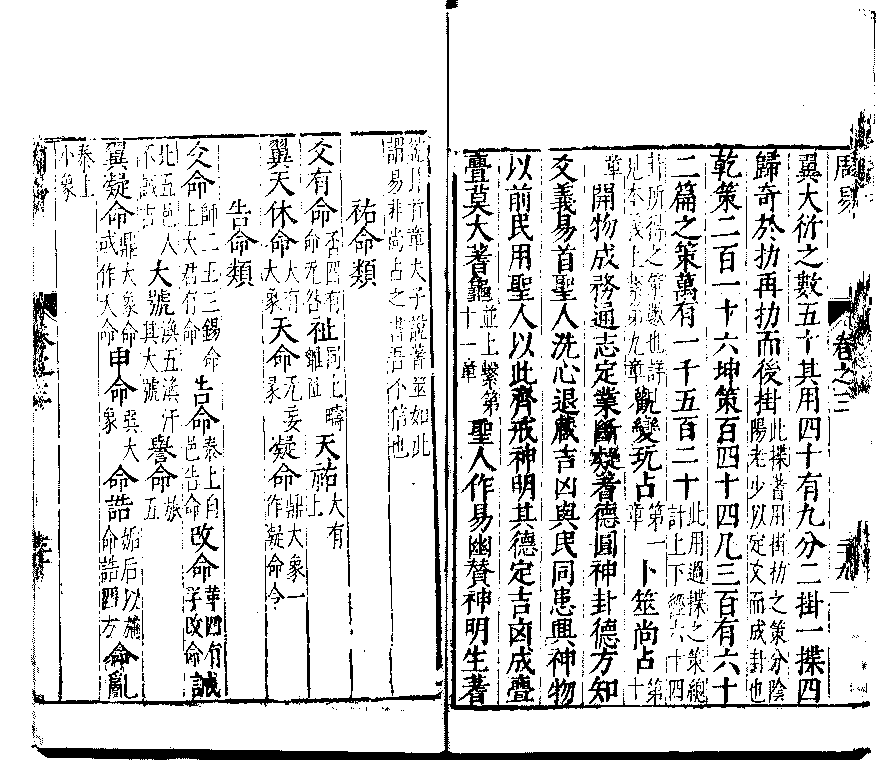 周易
卷之三
三九
翼大衍之數五十其用四十有九分二掛一揲四
歸奇於扐再扐而後掛此揲蓍用掛扐之策分陰陽老少以定爻而成卦也
乾策二百一十六坤策百四十四凡三百有六十
二篇之策萬有一千五百二十此用過揲之策總計上下經六十四
卦所得之策數也詳見本義上繫第九章觀變玩占第一章卜筮尚占第十
章開物成務通志定業斷疑蓍德圓神卦德方知
爻義易首聖人洗心退藏吉凶與民同患興神物
以前民用聖人以此齊戒神明其德定吉凶成亹
亹莫大蓍龜並上繫第十一章聖人作易幽贊神明生蓍
說卦首章夫子說蓍筮如此謂易非尚占之書吾不信也
祐命類
爻有命否四有命无咎祉同上疇離祉天祐大有上
翼天休命大有大象天命无妄彖凝命鼎大象一作凝命令
告命類
爻命師二王三錫命上大君有命告命泰上自邑告命改命革四有孚改命誡
比五邑人不誡吉大號渙五渙汗其大號譽命旅五
翼凝命鼎大象命或作大命申命巽大象命誥姤后以施命誥四方命亂
泰上小象